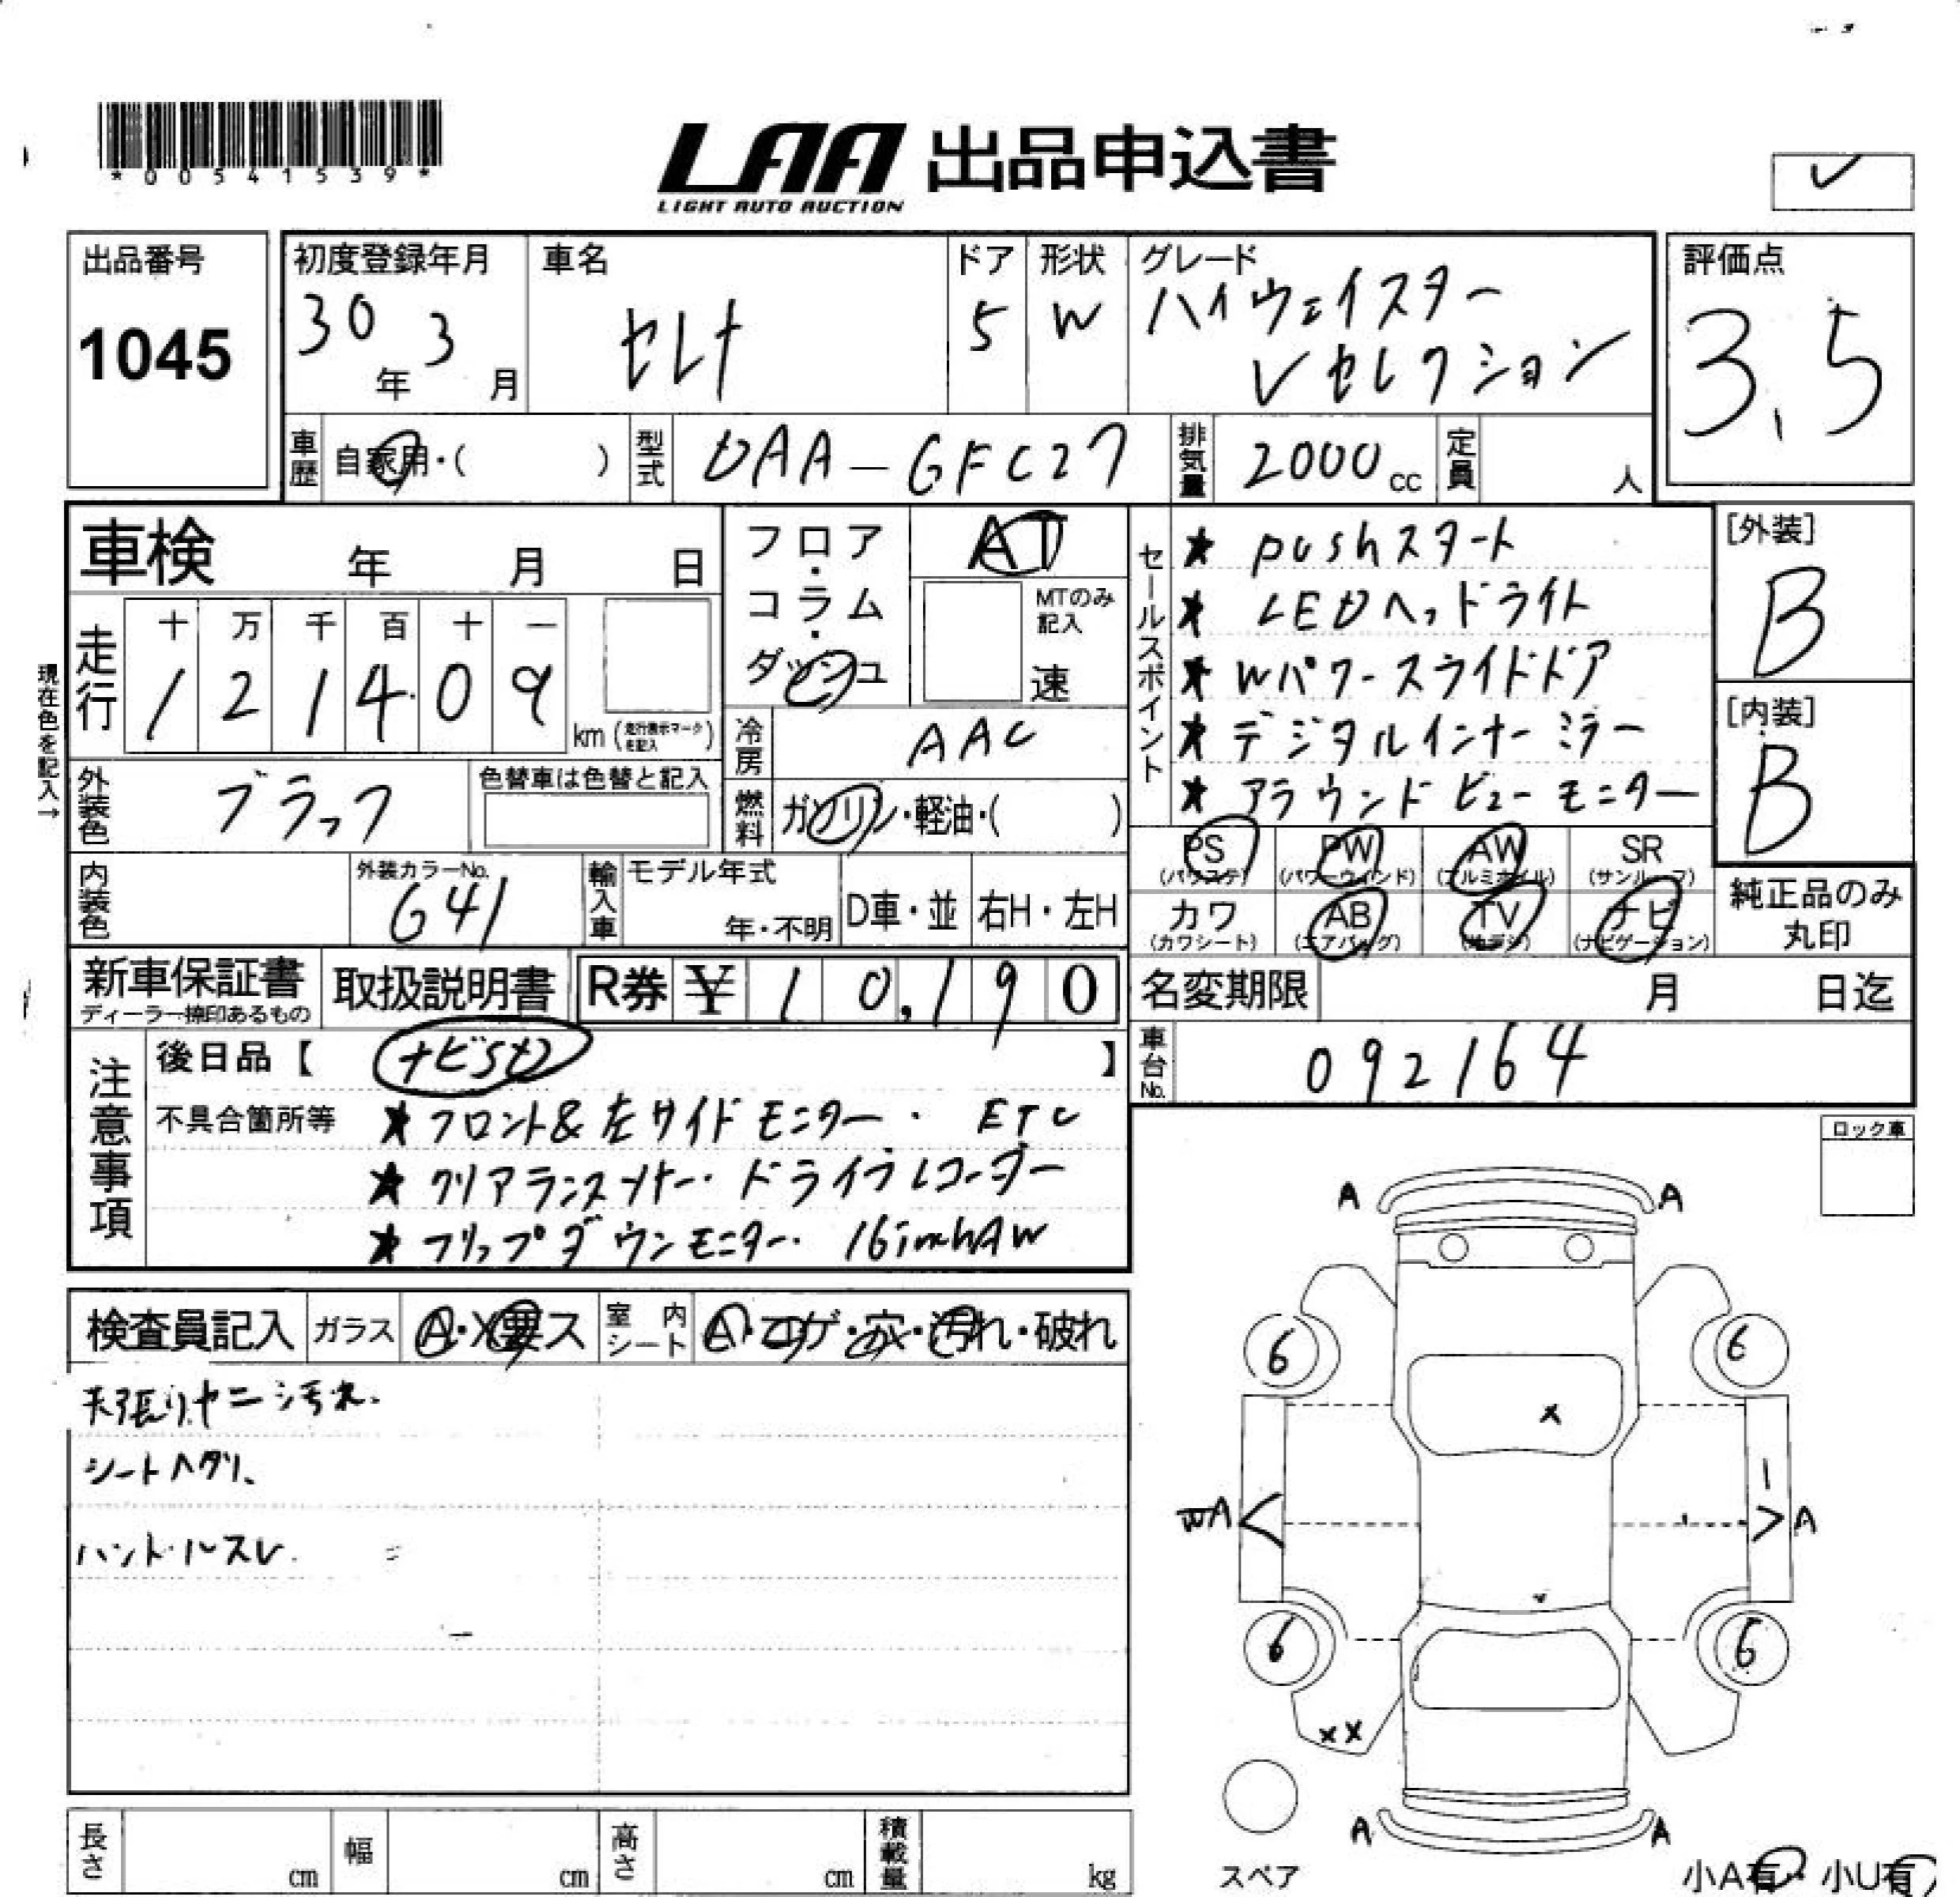 *00541539*
LAA 出品申込書
LIGHT AUTO AUCTION
出品番号
1045
初度登録年月
30年 3月
車名
セレナ
ドア
5
形状
W
グレード
ハイウェイスター
Vセレクション
評価点
3.5
車歴
自家用・( )
型式
DAA-GFC27
排気量
2000cc
定員
人
車検 年 月 日
フロア・コラム・ダッシュ
AT
MTのみ記入
速
現在色を記入→
走行
十 万 千 百 十 一
1 2 1 4 0 9
km (走行表示マークを記入)
冷房
AAC
外装色
ブラック
色替車は色替と記入
燃料
ガソリン・軽油・( )
内装色
外装カラーNo.
G41
輸入車
モデル年式
年・不明
D車・並
右H・左H
セールスポイント
★ pushスタート
★ LEDヘッドライト
★ Wパワースライドドア
★ デジタルインナーミラー
★ アラウンドビューモニター
[外装]
B
[内装]
B
PS (パワステ)
PW (パワーウィンド)
AW (アルミホイル)
SR (サンルーフ)
カワ (カワシート)
AB (エアバッグ)
TV (地デジ)
ナビ (ナビゲーション)
純正品のみ
丸印
新車保証書
ディーラー捺印あるもの
取扱説明書
R券 ¥ 10,190
名変期限 月 日迄
車台No.
092164
注意事項
後日品【 ナビSD 】
不具合箇所等
★フロント&左サイドモニター・ ETC
★クリアランスソナー・ドライブレコーダー
★フリップダウンモニター・16inchAW
ロック車
検査員記入
ガラス
A・X要ス
室内シート
A・コゲ・穴・汚れ・破れ
天張りヤニシ汚れ.
シートヘタリ、
ハンドルスレ.
A A
6 6
X
WA A
6 6
XX
A A
スペア
小A有・小U有
長さ cm
幅 cm
高さ cm
積載量 kg